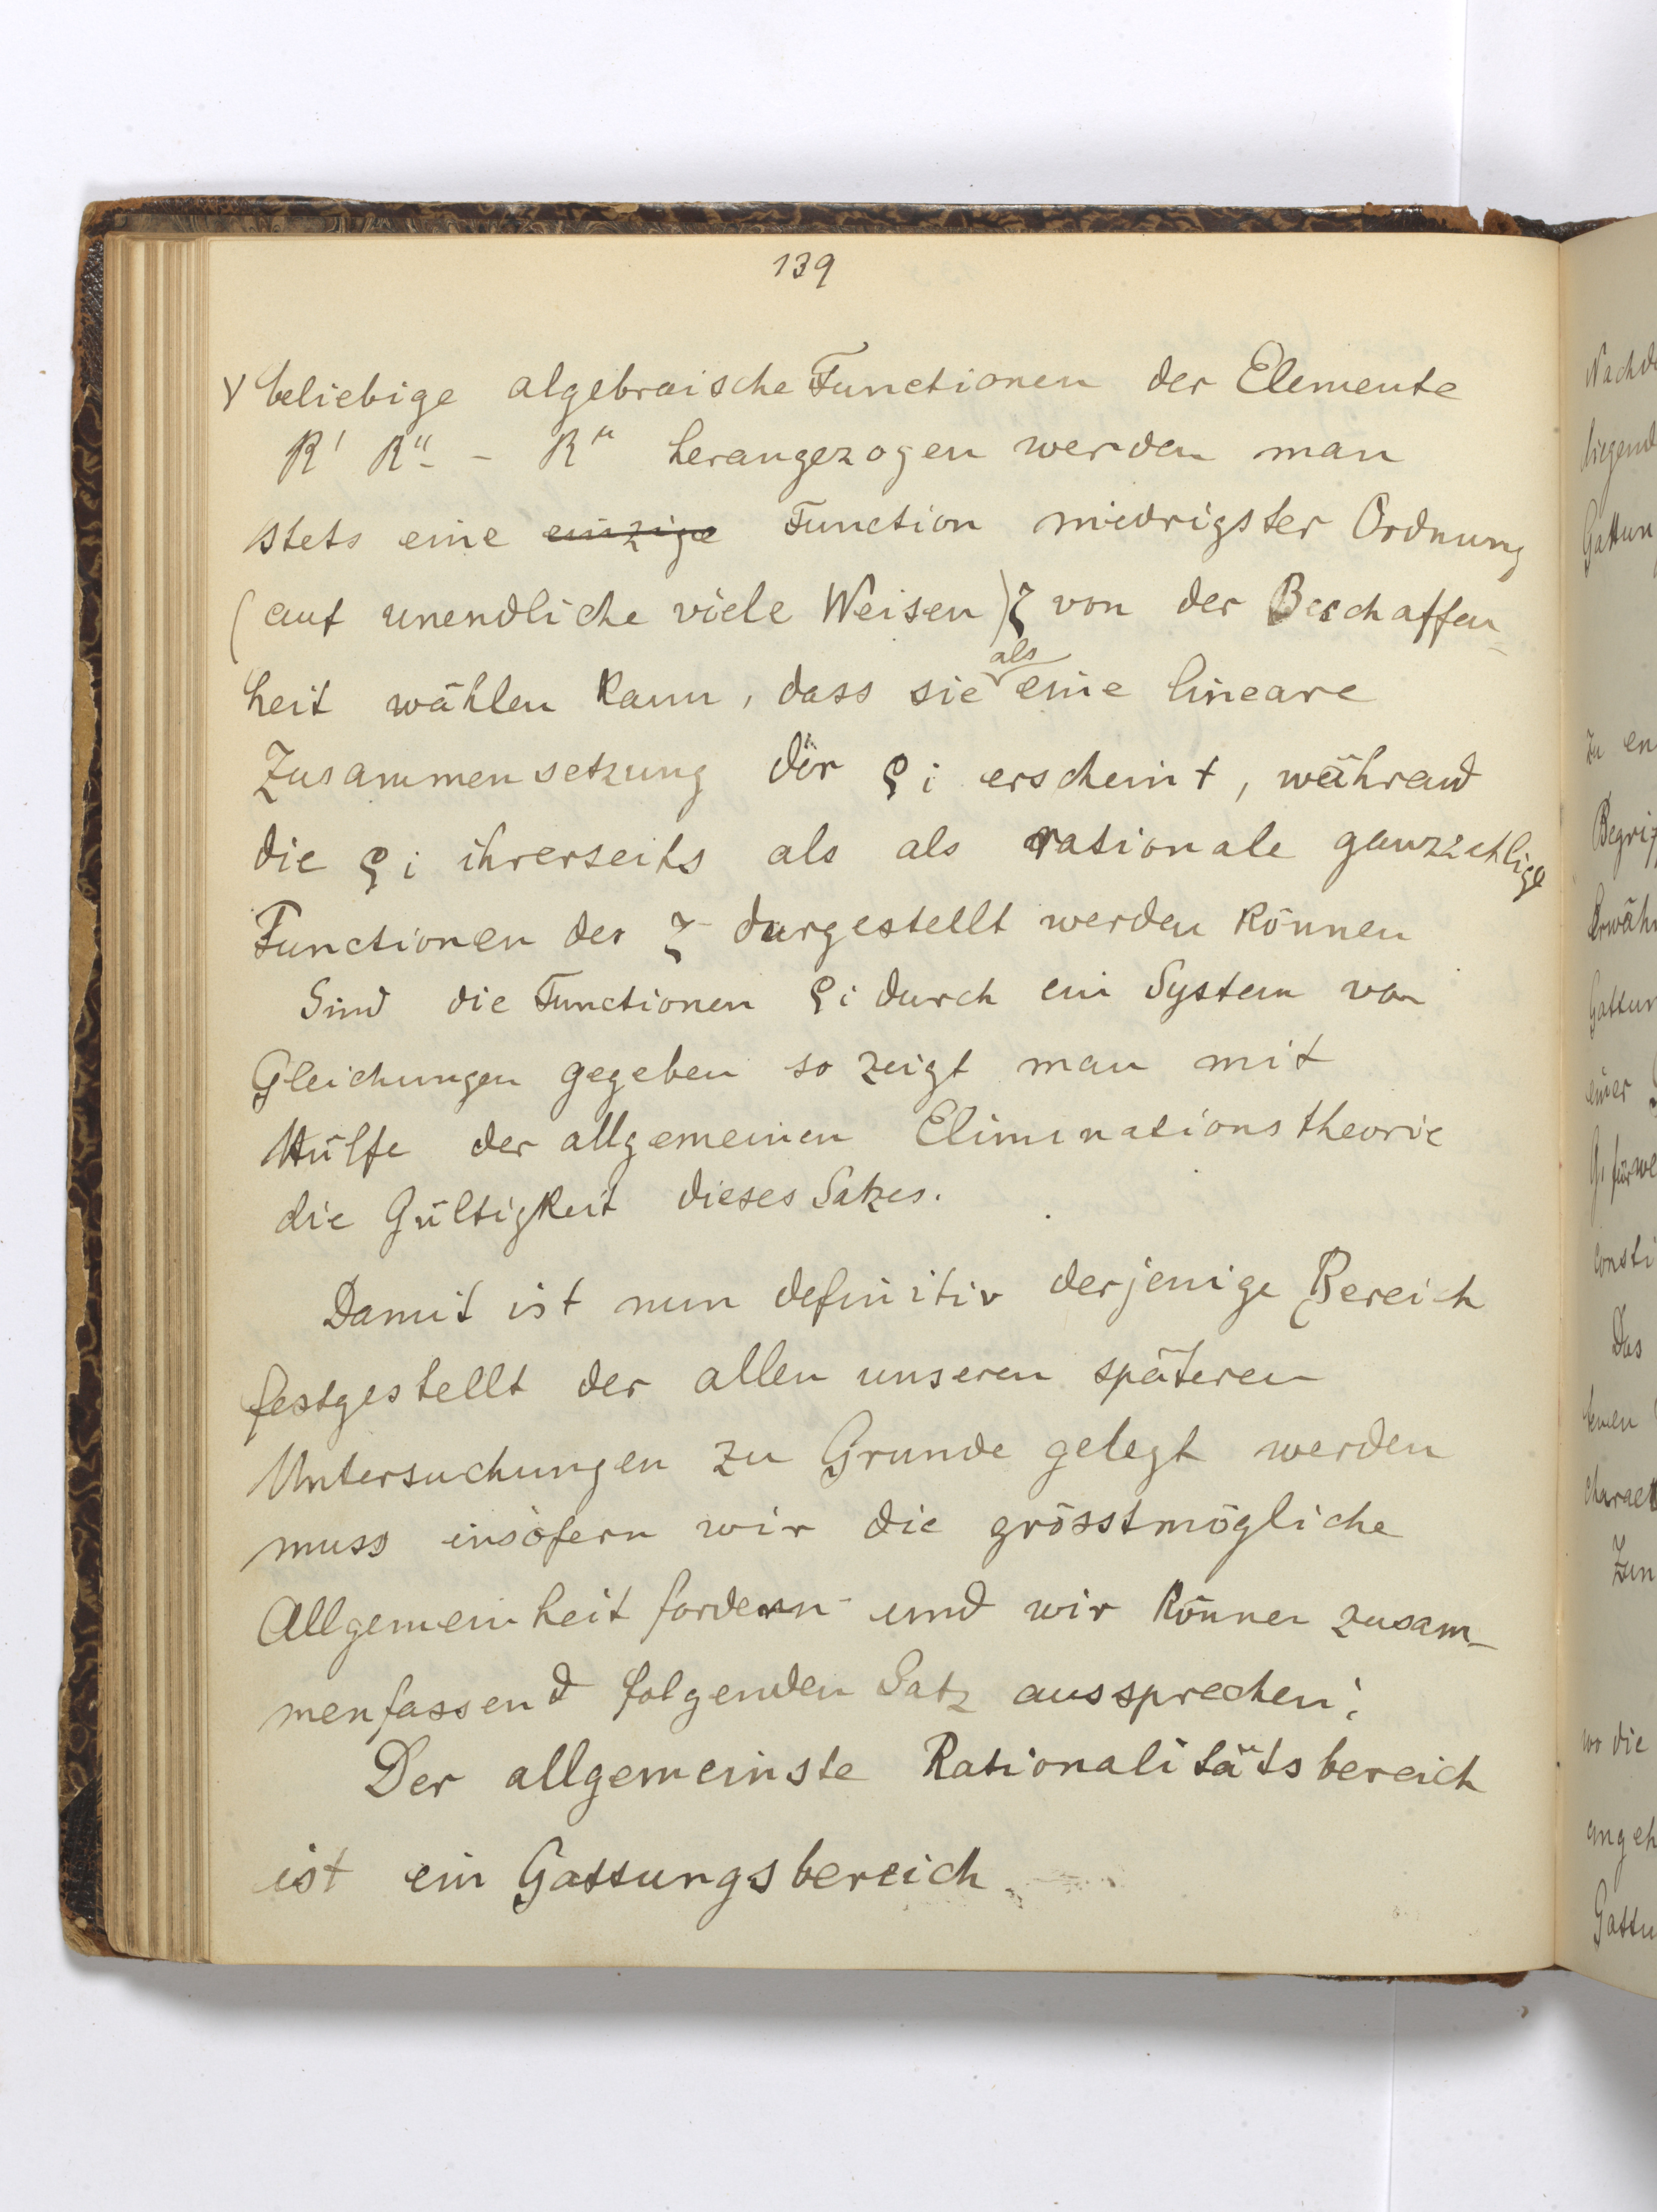 139
γ beliebige algebraische Functionen der Elemente
R' R'' - - R^μ herangezogen werden man
stets eine ~~einzige~~ Function niedrigster Ordnung
(auf unendliche viele Weisen) ζ von der Beschaffen-
heit wählen kann, dass sie als eine lineare
Zusammensetzung der ϱi erscheint, während
die ϱi ihrerseits als als rationale ganzzahlige
Functionen der ζ dargestellt werden können
Sind die Functionen ϱi durch ein System von
Gleichungen gegeben so zeigt man mit
Hülfe der allgemeinen Eliminationstheorie
die Gültigkeit dieses Satzes.
Damit ist nun definitiv derjenige Bereich
festgestellt der allen unseren späteren
Untersuchungen zu Grunde gelegt werden
muss insofern wir die grösstmögliche
Allgemeinheit fordern und wir können zusam-
menfassend folgenden Satz aussprechen:
Der allgemeinste Rationalitätsbereich
ist ein Gattungsbereich.